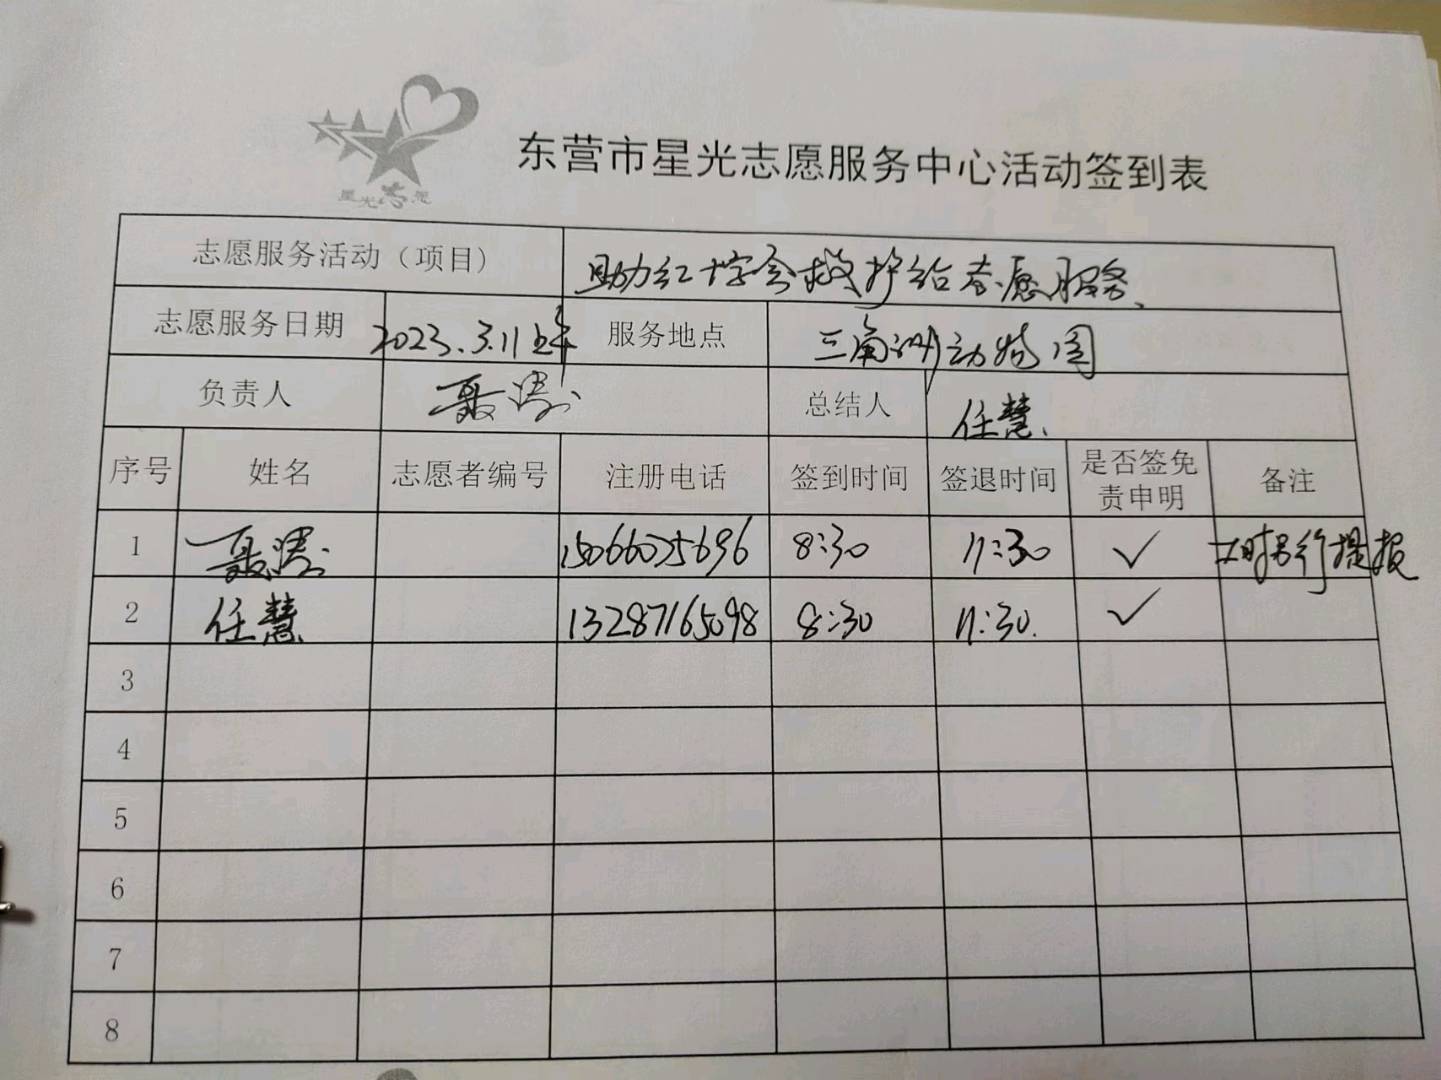 星光志愿
东营市星光志愿服务中心活动签到表
志愿服务活动（项目） 助力红十字会救护站志愿服务
志愿服务日期 2023.3.11上午 服务地点 三角洲动物园
负责人 聂涛 总结人 任慧
序号 姓名 志愿者编号 注册电话 签到时间 签退时间 是否签免责申明 备注
1 聂涛 15066075696 8:30 11:30 ✓ 工时另行提报
2 任慧 13287165098 8:30 11:30 ✓
3
4
5
6
7
8